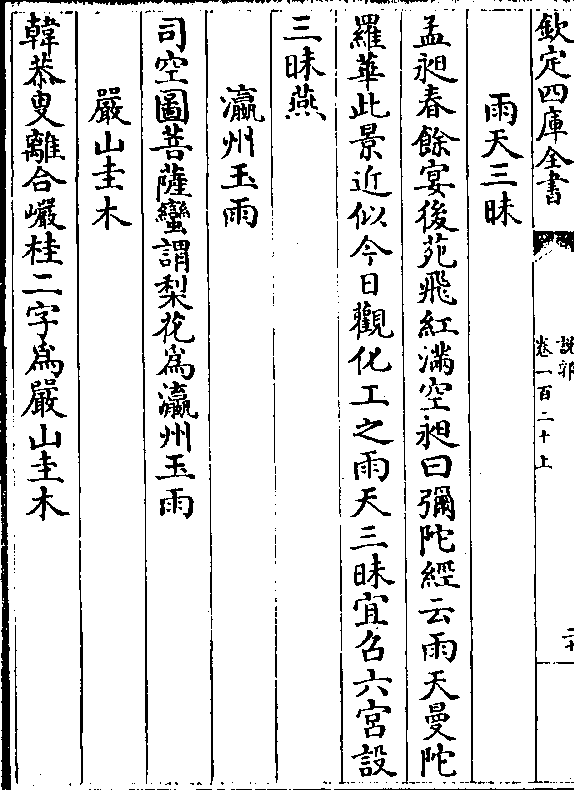 欽定四庫全書
説郛
卷一百二十上
二十
雨天三昧
孟昶春餘宴後苑飛紅滿空昶曰彌陀經云雨天曼陀
羅華此景近似今日觀化工之雨天三昧宜召六宫設
三昧燕
瀛州玉雨
司空圖菩薩蠻謂梨花爲瀛州玉雨
嚴山圭木
韓恭叟離合巖桂二字爲嚴山圭木